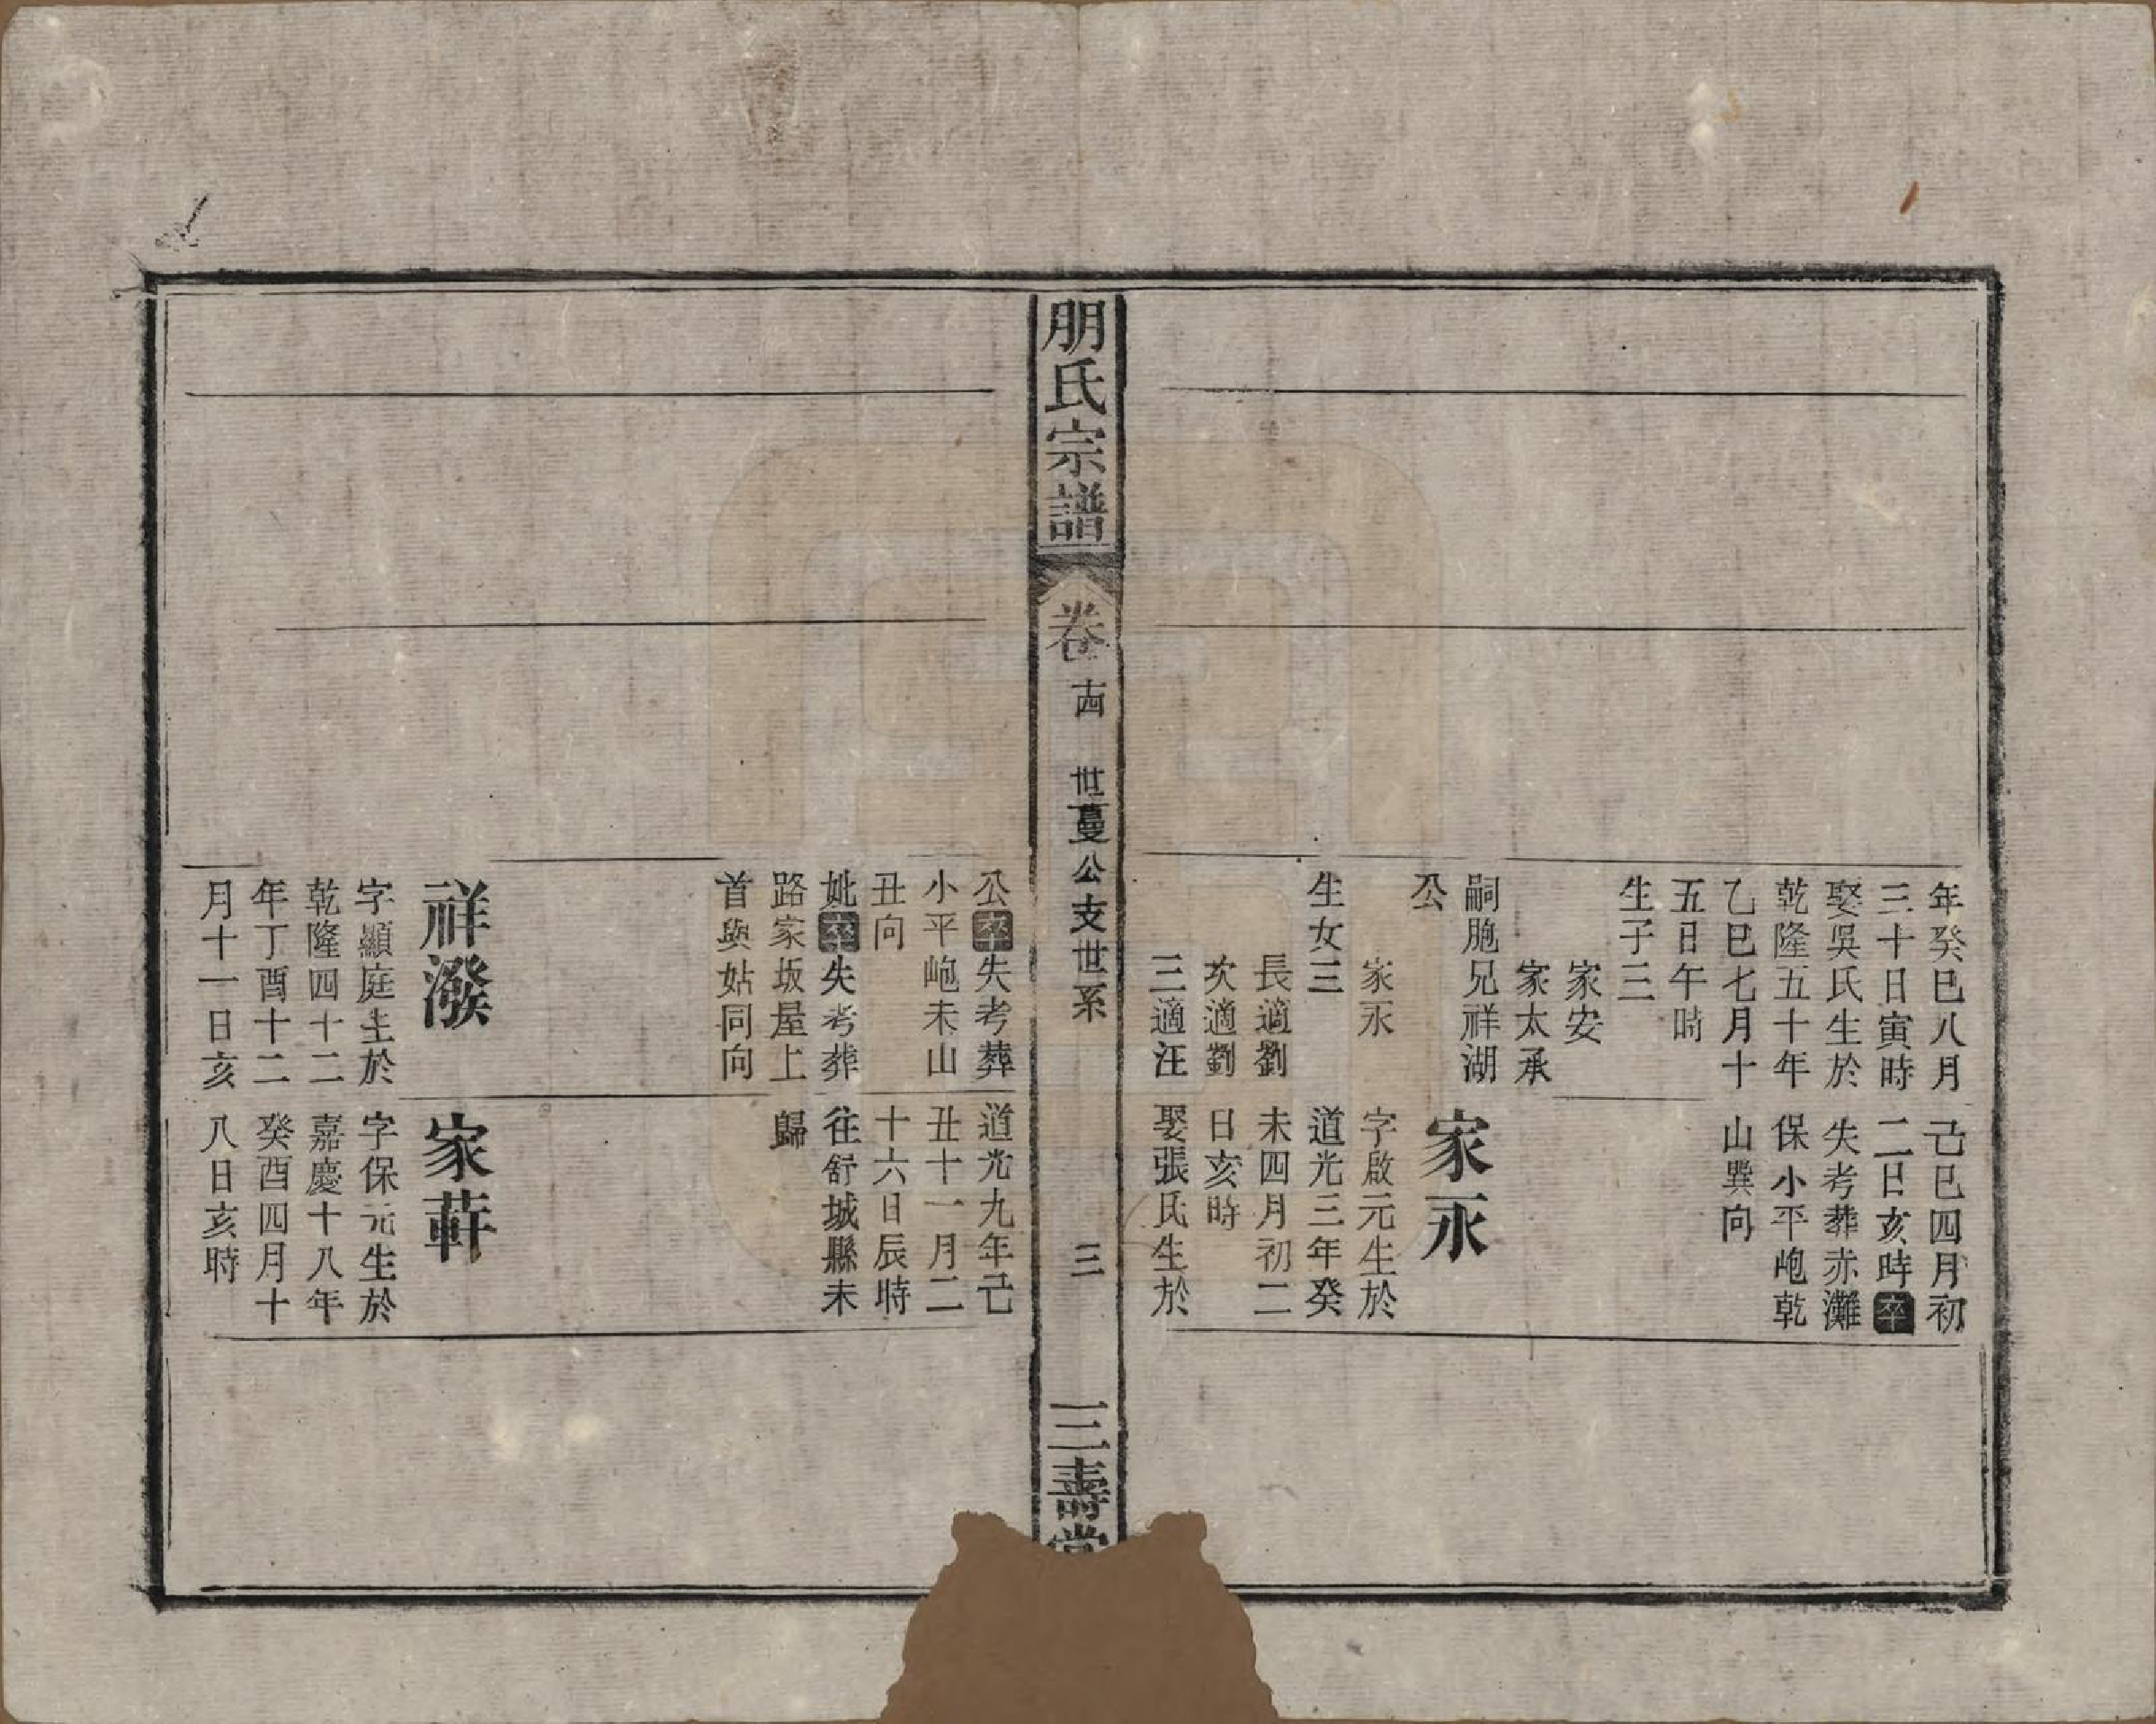 年癸巳八月
三十日寅時
娶吳氏生於
乾隆五十年
乙巳七月十
五日午時
生子三
家安
家太承
嗣胞兄祥湖
公
家永
生女三
長適劉
次適劉
三適汪
己巳四月初
二日亥時卒
失考葬赤灘
保小平岠乾
山巽向
家永
字啟元生於
道光三年癸
未四月初二
日亥時
娶張氏生於
朋氏宗譜
卷
十四
世蔓公支世系
三
三壽堂
公卒失考葬
小平岠未山
丑向
妣卒失考葬
路家坂屋上
首與姑同向
祥潑
字顯庭生於
乾隆四十二
年丁酉十二
月十一日亥
道光九年己
丑十一月二
十六日辰時
往舒城縣未
歸
家蓒
字保元生於
嘉慶十八年
癸酉四月十
八日亥時